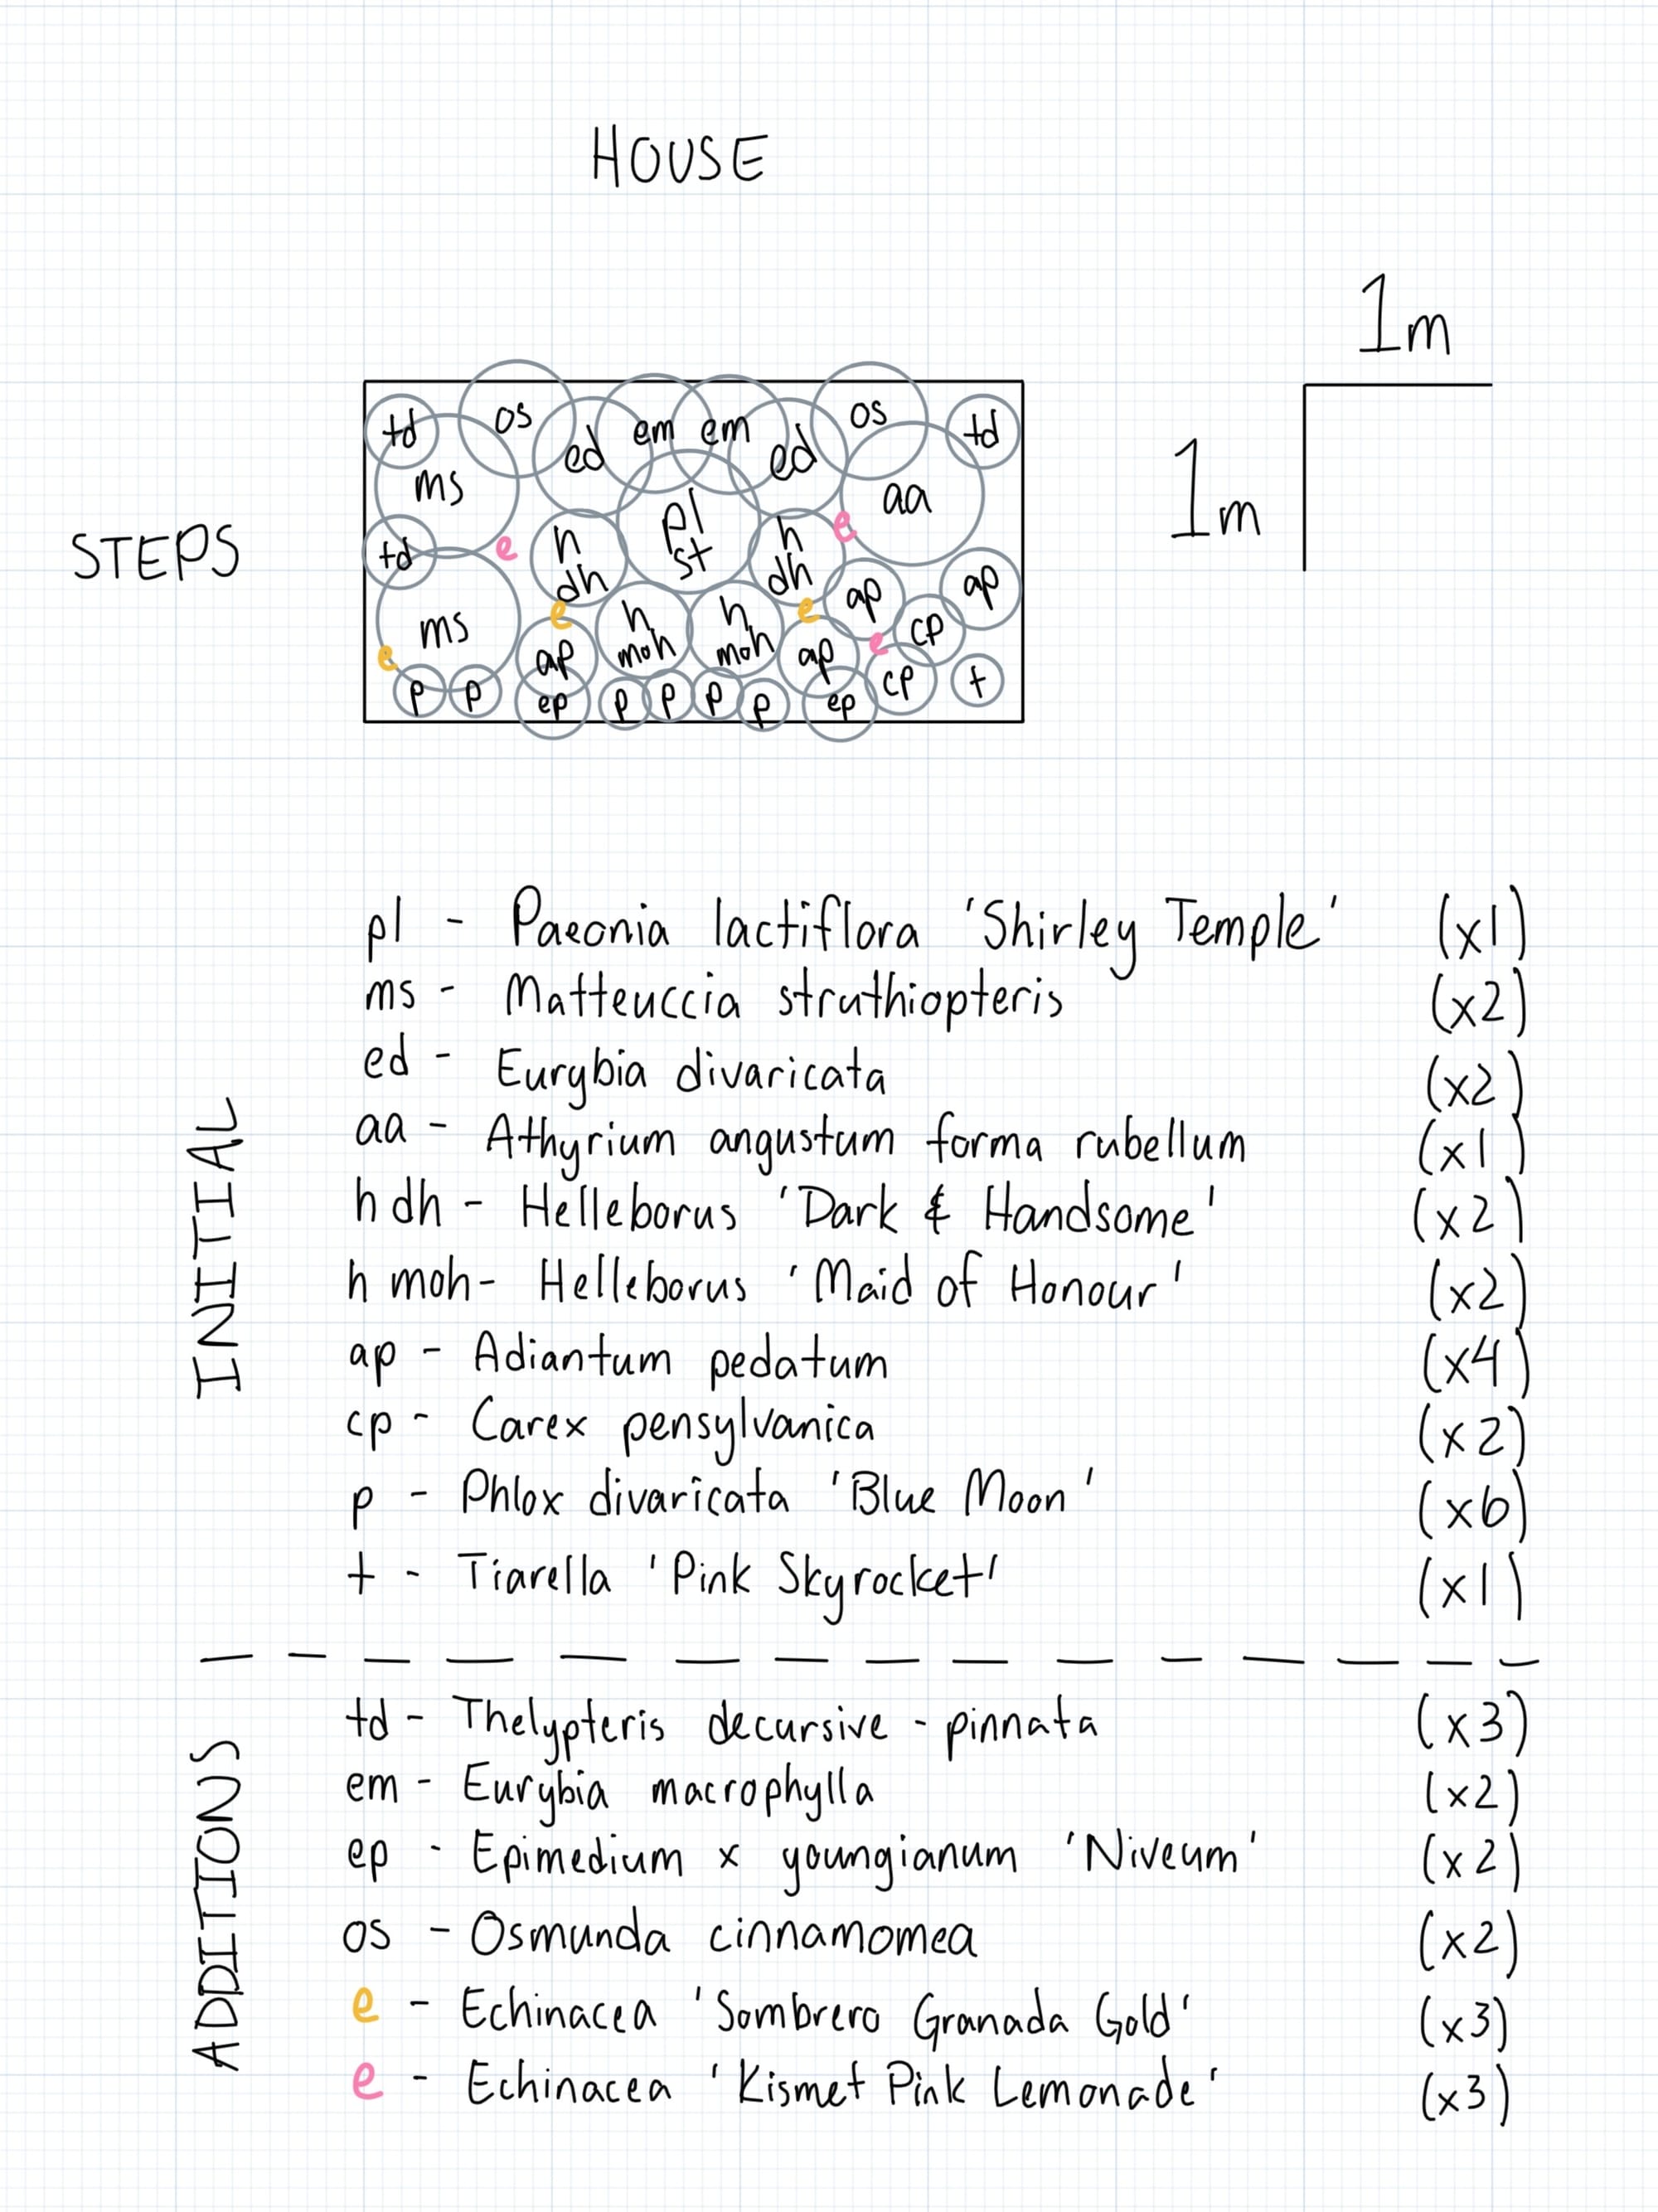 HOUSE
1m
1m
STEPS
td os ed em em ed os td
ms aa
td e h dh pl st h dh e ap ap
ms e e h moh h moh ap ap e cp
e p p ep p p p p ep cp t
pl - Paeonia lactiflora 'Shirley Temple' (x1)
ms - Matteuccia struthiopteris (x2)
ed - Eurybia divaricata (x2)
aa - Athyrium angustum forma rubellum (x1)
h dh - Helleborus 'Dark & Handsome' (x2)
h moh - Helleborus 'Maid of Honour' (x2)
ap - Adiantum pedatum (x4)
cp - Carex pensylvanica (x2)
p - Phlox divaricata 'Blue Moon' (x6)
t - Tiarella 'Pink Skyrocket' (x1)
INITIAL
td - Thelypteris decursive - pinnata (x3)
em - Eurybia macrophylla (x2)
ep - Epimedium x youngianum 'Niveum' (x2)
os - Osmunda cinnamomea (x2)
e - Echinacea 'Sombrero Granada Gold' (x3)
e - Echinacea 'Kismet Pink Lemonade' (x3)
ADDITIONS